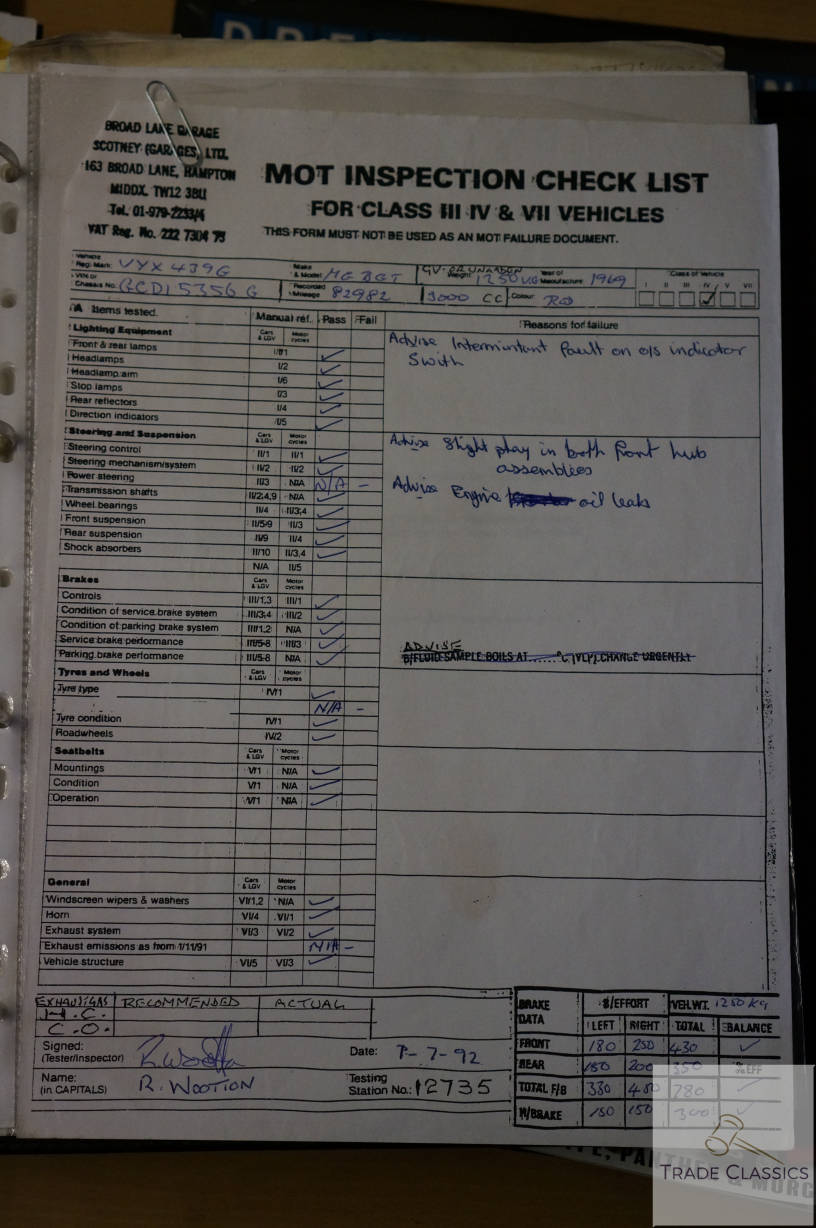 BROAD LANE GARAGE
SCOTNEY (GARAGES) LTD.
163 BROAD LANE, HAMPTON
MIDDX. TW12 3BU
Tel. 01-979-2233/4
VAT Reg. No. 222 7304 75
MOT INSPECTION CHECK LIST
FOR CLASS III IV & VII VEHICLES
THIS FORM MUST NOT BE USED AS AN MOT FAILURE DOCUMENT.
Vehicle Reg. Mark: VYX 439G Make & Model MG BGT Weight: 1250 KG Year of Manufacture: 1969 Class of Vehicle
VIN or Chassis No. GCD1 5356 G Recorded Mileage 82982 3000 CC Colour: RED I II III IV V VII
A Items tested. Manual ref. Pass Fail Reasons for failure
Lighting Equipment Cars & LGV Motor cycles
Front & rear lamps I/1
Headlamps I/2
Headlamp aim I/6
Stop lamps I/3
Rear reflectors I/4
Direction indicators I/5
Advise Intermintant fault on o/s indicator
Swith
Steering and Suspension Cars & LGV Motor cycles
Steering control II/1 II/1
Steering mechanism/system II/2 II/2
Power steering II/3 N/A N/A –
Transmission shafts II/2,4,9 N/A
Wheel bearings II/4 II/3,4
Front suspension II/5-9 II/3
Rear suspension II/9 II/4
Shock absorbers II/10 II/3,4
N/A II/5
Advise Slight play in both front hub
assemblees
Advise Engine oil leaks
Brakes Cars & LGV Motor cycles
Controls III/1,3 III/1
Condition of service brake system III/3,4 III/2
Condition of parking brake system III/1,2 N/A
Service brake performance III/5-8 III/3
Parking brake performance III/5-8 N/A
ADVISE
B/FLUID SAMPLE BOILS AT ...... °C (VLP) CHANGE URGENTLY
Tyres and Wheels Cars & LGV Motor cycles
Tyre type IV/1
N/A –
Tyre condition IV/1
Roadwheels IV/2
Seatbelts Cars & LGV Motor cycles
Mountings V/1 N/A
Condition V/1 N/A
Operation V/1 N/A
General Cars & LGV Motor cycles
Windscreen wipers & washers VI/1,2 N/A
Horn VI/4 VI/1
Exhaust system VI/3 VI/2
Exhaust emissions as from 1/11/91 N/A –
Vehicle structure VI/5 VI/3
EXHAUST GAS RECOMMENDED ACTUAL
H.C.
C.O.
Signed: (Tester/Inspector) Date: 7-7-92
Name: (in CAPITALS) R. WOOTTON Testing Station No.: 12735
BRAKE DATA B/EFFORT VEH.WT. 1250 KG
LEFT RIGHT TOTAL BALANCE
FRONT 180 250 430
REAR 150 200 350 % EFF
TOTAL F/B 330 450 780
H/BRAKE 150 150 300
TRADE CLASSICS